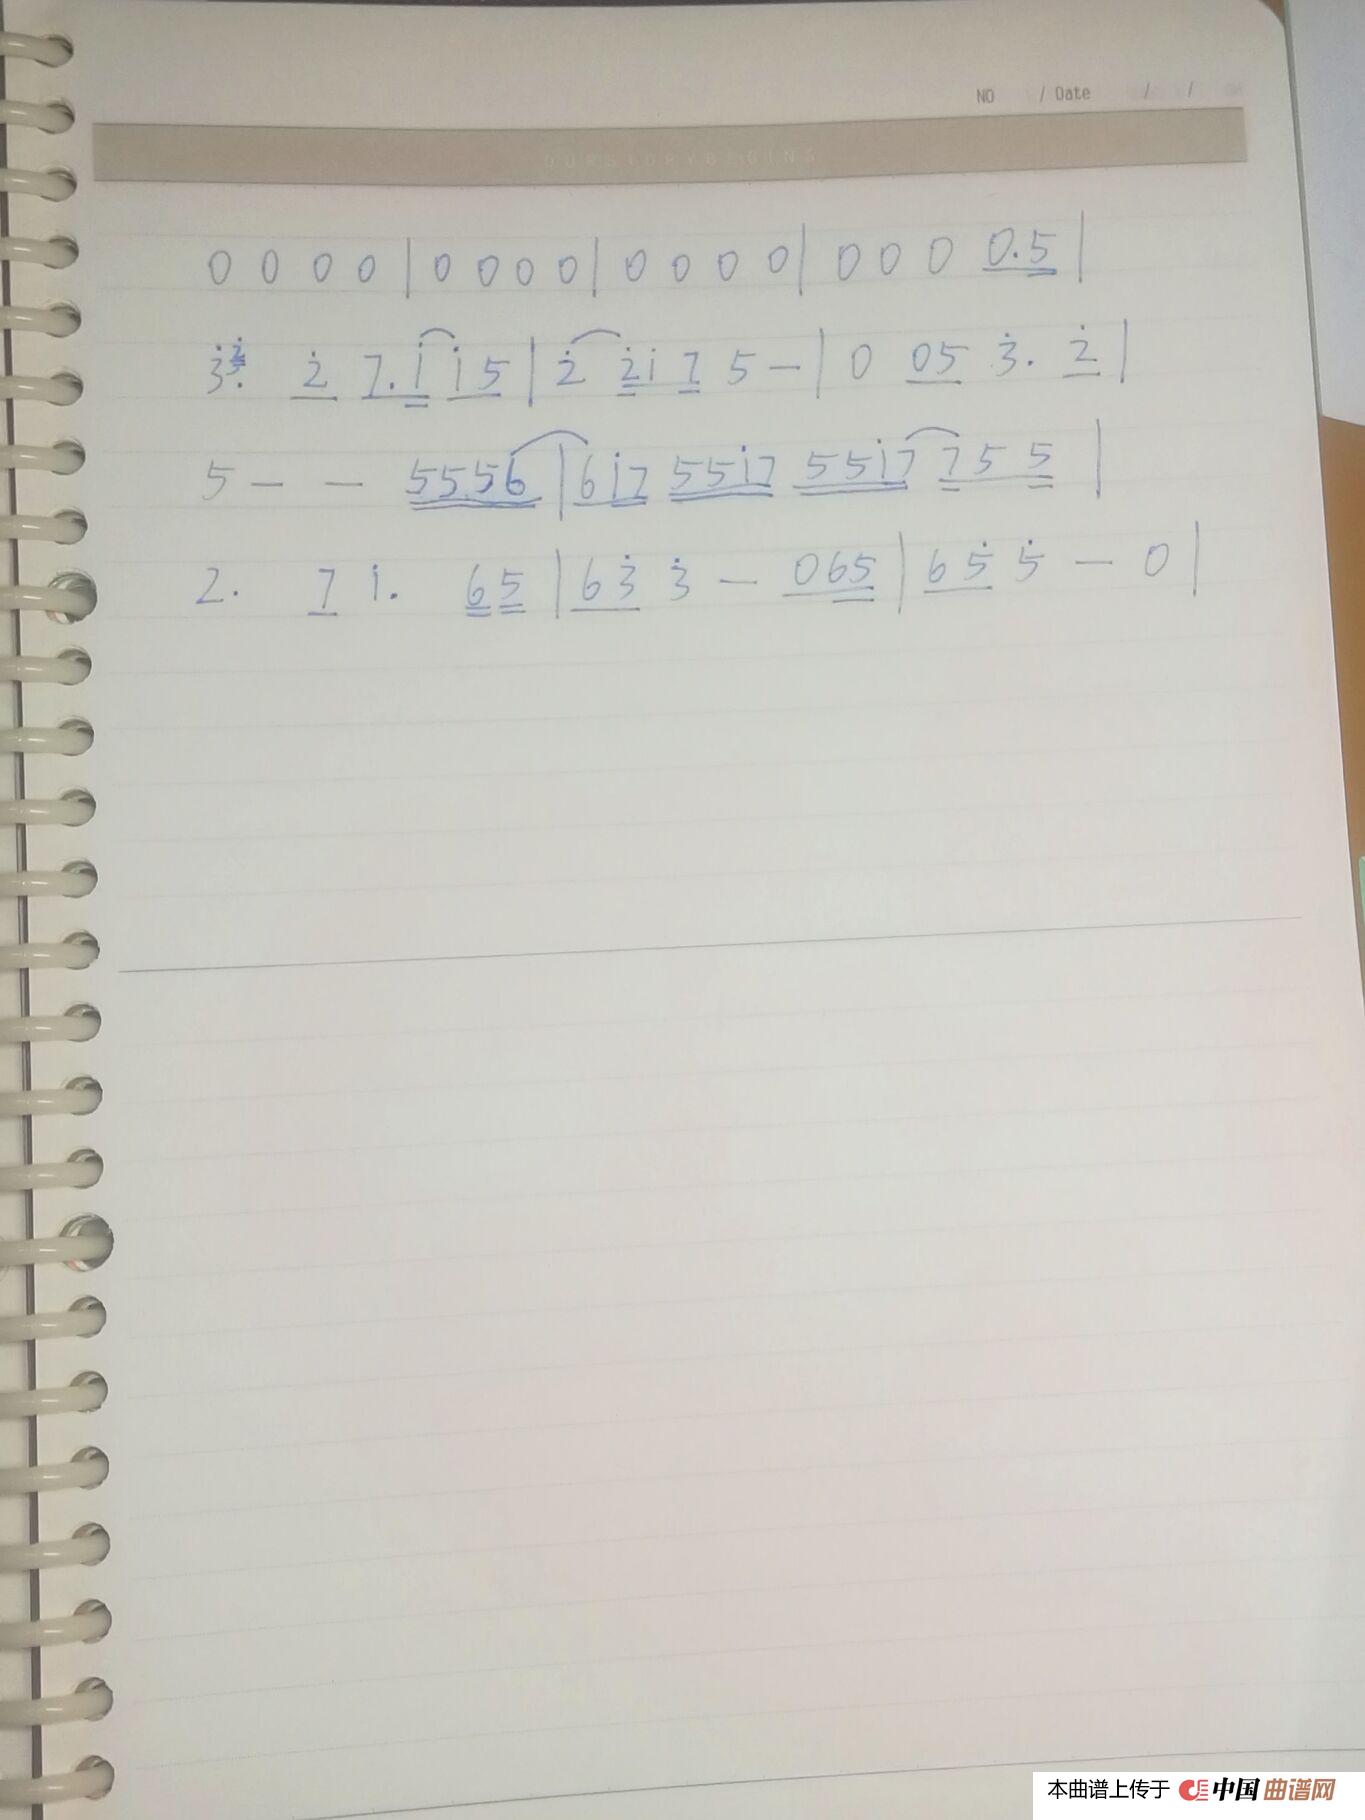 NO / Date / /
OURSTORYBEGINS
0 0 0 0 | 0 0 0 0 | 0 0 0 0 | 0 0 0 0.5 |
3̇. 2̇ 7.1̇ 1̇5 | 2̇ 2̇1̇ 7 5 — | 0 05 3̇. 2̇ |
5 — — 5556 | 61̇7 551̇7 551̇7 755 |
2. 7 1̇. 65 | 63̇ 3̇ — 065 | 65̇ 5̇ — 0 |
本曲谱上传于 中国曲谱网